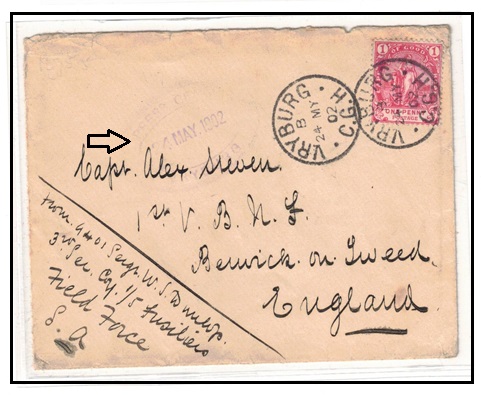 1
OF GOOD HO
ONE PENNY
POSTAGE
VRYBURG · C.G.H.
B
24 MY
02
VRYBURG · C.G.H.
MAY.1902
Capt. Alex Steven.
1st V. B. N. F.
Berwick on Tweed.
England
from 9401 Sergt. W. S. Dunlop.
3rd Ser. Coy. 1/5 Fusiliers
Field Force
S. A